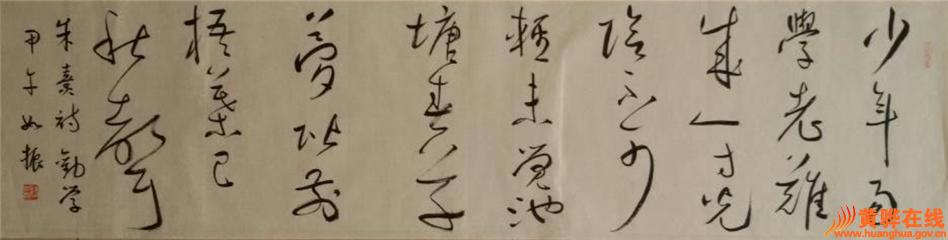 少年易
學老難
成一寸光
陰不可
輕未覺池
塘春草
夢阶前
梧葉已
秋聲
朱熹詩勸学
甲午如振
黄骅在线
www.huanghua.gov.cn